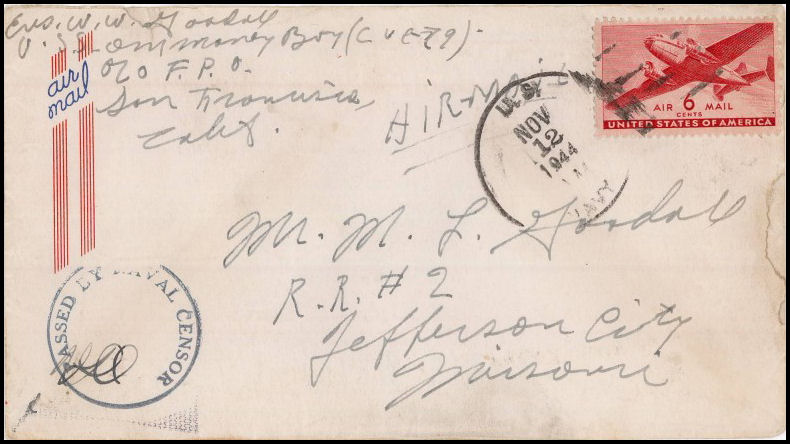 Ens. W. W. Goodall
U.S.S. Ommaney Bay (CVE-79).
c/o F.P.O.
San Francisco
Calif.
air
mail
AIR-MAIL
U.S.
NOV
12
1944
NAVY
AIR 6 MAIL
CENTS
UNITED STATES OF AMERICA
Mr. M. L. Goodall
R.R. # 2
Jefferson City
Missouri
PASSED BY NAVAL CENSOR